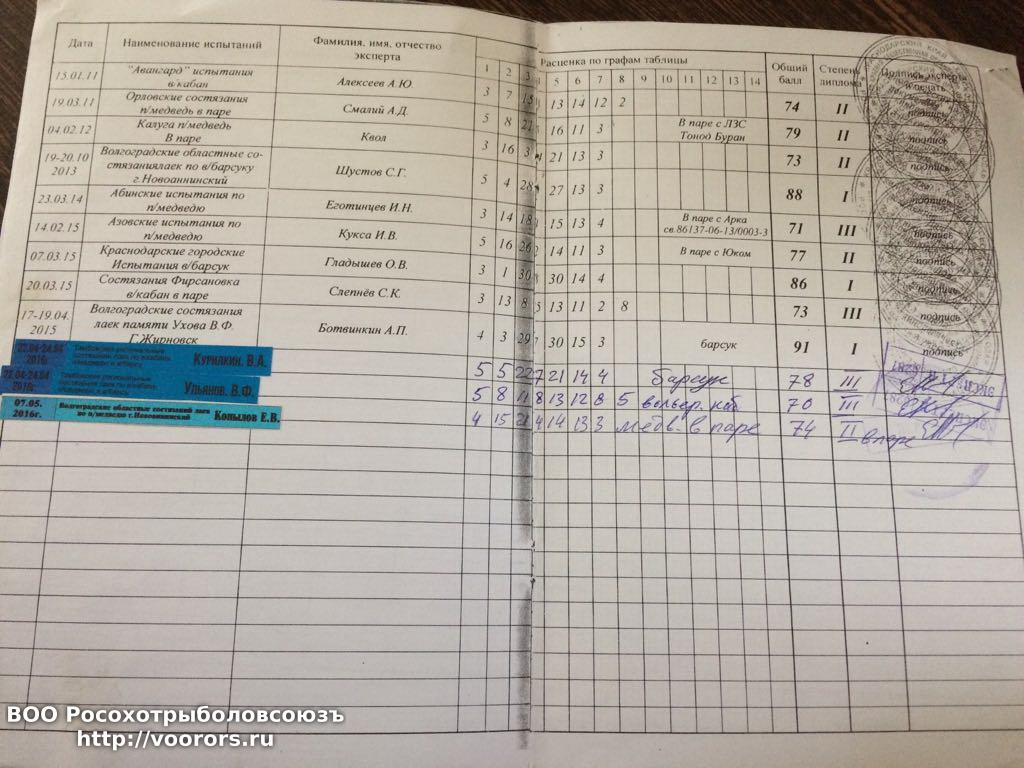 Дата Наименование испытаний Фамилия, имя, отчество эксперта Расценка по графам таблицы Общий балл Степень диплома Подпись эксперта и печать
1 2 3 5 6 7 8 9 10 11 12 13 14
15.01.11 "Авангард" испытания в/кабан Алексеев А.Ю. 3 7 15 13 14 12 2 74 II подпись
19.03.11 Орловские состязания п/медведь в паре Смалий А.Д. 5 8 21 16 11 3 В паре с ЛЗС Тонод Буран 79 II подпись
04.02.12 Калуга п/медведь В паре Квол 3 16 3 21 13 3 73 II подпись
19-20.10 2013 Волгоградские областные состязаниялаек по в/барсуку г.Новоаннинский Шустов С.Г. 5 4 28 27 13 3 88 I подпись
23.03.14 Абинские испытания по п/медведю Еготинцев И.Н. 3 14 18 15 13 4 В паре с Арка св.86137-06-13/0003-3 71 III подпись
14.02.15 Азовские испытания по п/медведю Кукса И.В. 5 16 26 14 11 3 В паре с Юком 77 II подпись
07.03.15 Краснодарские городские Испытания в/барсук Гладышев О.В. 3 1 30 30 14 4 86 I подпись
20.03.15 Состязания Фирсановка в/кабан в паре Слепнёв С.К. 3 13 8 5 13 11 2 8 73 III подпись
17-19.04. 2015 Волгоградские состязания лаек памяти Ухова В.Ф. Г.Жирновск Ботвинкин А.П. 4 3 29 30 15 3 барсук 91 I подпись
22.04-24.04 2016г. Тамбовские региональные состязания лаек по в/кабану, п/медведю и в/барсуку Курилкин. В.А. 5 5 22 7 21 14 4 барсук 78 III
22.04-24.04 2016г. Тамбовские региональные состязания лаек по в/кабану, п/медведю и в/барсуку Ульянов. В.Ф. 5 8 11 8 13 12 8 5 вольер. каб 70 III
07.05. 2016г. Волгоградские областные состязаний лаек по п/медведю г.Новоаннинский Копылов Е.В. 4 15 21 4 14 13 3 медв. в паре 74 II в паре
ВОО Росохотрыболовсоюзъ
http://voorors.ru